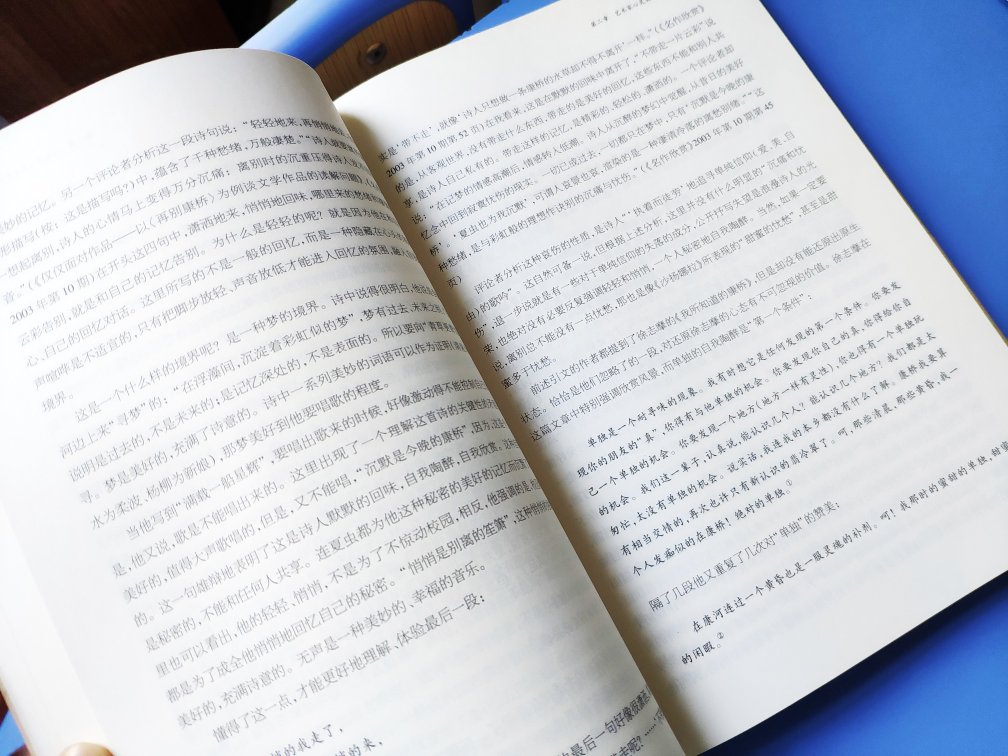 妙的记忆。
另一个评论者分析这一段诗句说:“轻轻地来,再悄悄地
形描写(按:这是描写吗?)中,蕴含了千种愁绪,万般凄楚。”“诗人就要
一想起离别,诗人的心情马上变得万分沉痛;离别时的沉重压得诗人
音。”(《仅仅面对作品——以〈再别康桥〉为例谈文学作品的读解问题》
2003年第10期)在开头这四句中,潇洒地来,悄悄地回味,哪里来的愁绪和
云彩告别,就是和自己的记忆告别。为什么是轻轻的呢?就是因为他在和
心、自己的回忆对话。这里所写的不是一般的回忆,而是一种隐藏在心头的
声喧哗是不适宜的,只有把脚步放轻、声音放低才能进入回忆的氛围,融入
境界。
这是一个什么样的境界呢?是一种梦的境界。诗中说得很明白,他说
河边上来“寻梦”的:“在浮藻间,沉淀着彩虹似的梦”,梦有过去、未来之
说明是过去的,不是未来的;是记忆深处的,不是表面的。所以要向“青草更青处
寻。梦是美好的,充满了诗意的。诗中一系列美妙的词语可以作为证明
水为柔波,杨柳为新娘),那梦美好到他要唱歌的程度。
当他写到“满载一船星辉”,要唱出歌来的时候,好像激动得不能控制
是,他又说,歌是不能唱出来的。这里出现了一个理解这首诗的关键性
美好的,值得大声歌唱的,但是,又不能唱,“沉默是今晚的康桥”,因为,这是
的。这一句雄辩地表明了这是诗人默默的回味,自我陶醉,自我欣赏。
是秘密的,不能和任何人共享。连夏虫都为他这种秘密的美好的记忆而
里也可以看出,他的轻轻、悄悄,不是为了不惊动校园,相反,他强调的是,
都是为了成全他悄悄地回忆自己的秘密。“悄悄是别离的笙箫”,这种悄悄
美好的,充满诗意的。无声是一种美妙的、幸福的音乐。
懂得了这一点,才能更好地理解、体验最后一段:
的我走了,
的来,
最后一句好像很潇洒
第二章 艺术家心灵
实是‘带不走’,就像‘诗人只想做一条康桥的水草却不得不离开’一样。”(《名作欣赏》
2003年第10期第52页)在我看来,这是在默默的回味中离开了,“不带走一片云彩”说
的是,从客观世界,没有带走什么东西,带走的是美好的回忆,这些东西不能和别人共
享,是诗人自己私有的。带走这样的记忆,是精彩的、轻松的、潇洒的。一个评论者却
说:“在记梦的情感高潮后,情感转入低潮。诗人从沉酣的梦幻中觉醒,从昔日的美好
忆念中回到寂寞忧伤的现实。一切已成过去,一切都只在梦中,只有‘沉默是今晚的康
桥’。‘夏虫也为我沉默’,可谓人哀擎也哀,渲染的是一种凄清冷落的离愁别绪。”“这
种愁绪,是与彩虹般的理想作诀别的沉痛与忧伤。”(《名作欣赏》2003年第10期第45
页)
评论者分析这种哀伤的性质,是诗人“‘执着而走穷’地追寻单纯信仰(爱、美、自
由)的歌吟”。这自然可备一说,但根据上述分析,这里并没有什么明显的“沉痛和忧
伤”,退一步说就是有一些对于单纯信仰的失落的成分,公开抒写失望是浪漫诗人的光
荣,也绝对没有必要反复强调轻轻和悄悄,一个人秘密地自我陶醉。当然,如果一定要
说,离别也不能没有一点忧愁,那也是像《沙扬娜拉》所表现的“甜蜜的忧愁”,甚至是甜
蜜多于忧愁。
前述引文的作者都提到了徐志摩的《我所知道的康桥》,但是却没有能还原出原生
状态。恰恰是他们忽略了的一段,对还原徐志摩的心态有不可忽视的价值。徐志摩在
这篇文章中特别强调欣赏风景,而单独的自我陶醉是“第一个条件”:
单独是一个耐寻味的现象。我有时想它是任何发现的第一个条件。你要发
现你的朋友的“真”,你得有与他单独的机会。你要发现你自己的真,你得给你自
己一个单独的机会。你要发现一个地方(地方一样有灵性),你也得有一个单独玩
的机会。我们这一辈子,认真说,能认识几个人?能认识几个地方?我们都是太
匆忙,太没有单独的机会。说实话,我连我的本乡都没有什么了解。康桥我要算
有相当交情的,再次也许只有新认识的翡冷翠了。呵,那些清晨,那些黄昏,我一
个人发痴似的在康桥!绝对的单独。①
隔了几段他又重复了几次对“单独”的赞美:
在康河边过一个黄昏也是一服灵魂的补剂。呵!我那时的蜜甜的单独,
的闲暇。②